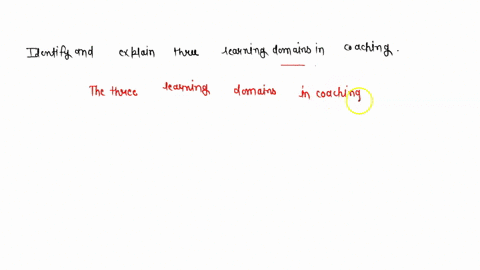 Identify and explain three learning domains in coaching.
The three learning domains in coaching